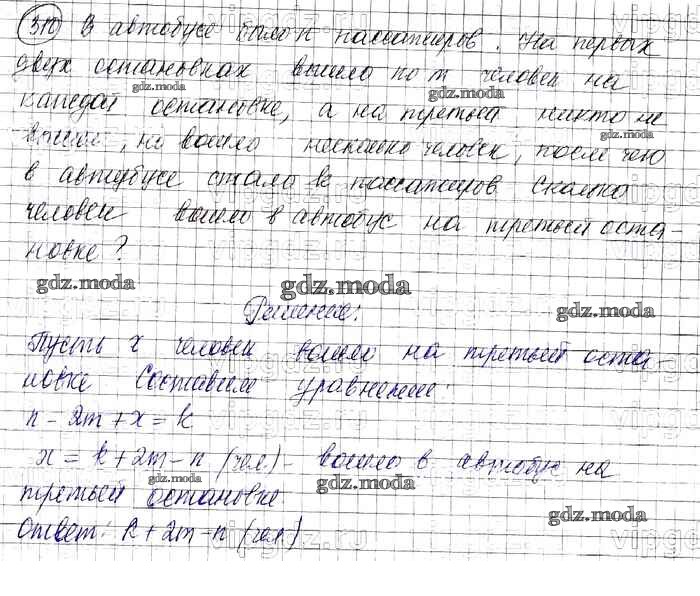 311) В автобусе было n пассажиров. На первых
двух остановках вышло по m человек на
каждой остановке, а на третьей никто не
вышел, но вошло несколько человек, после чего
в автобусе стало k пассажиров Сколько
человек вошло в автобус на третьей оста-
новке?
gdz.moda
Решение:
Пусть x человек вошло на третьей оста-
новке Составим уравнение:
n - 2m + x = k
x = k + 2m - n (чел) - вошло в автобус на
третьей остановке
Ответ: k + 2m - n (чел)